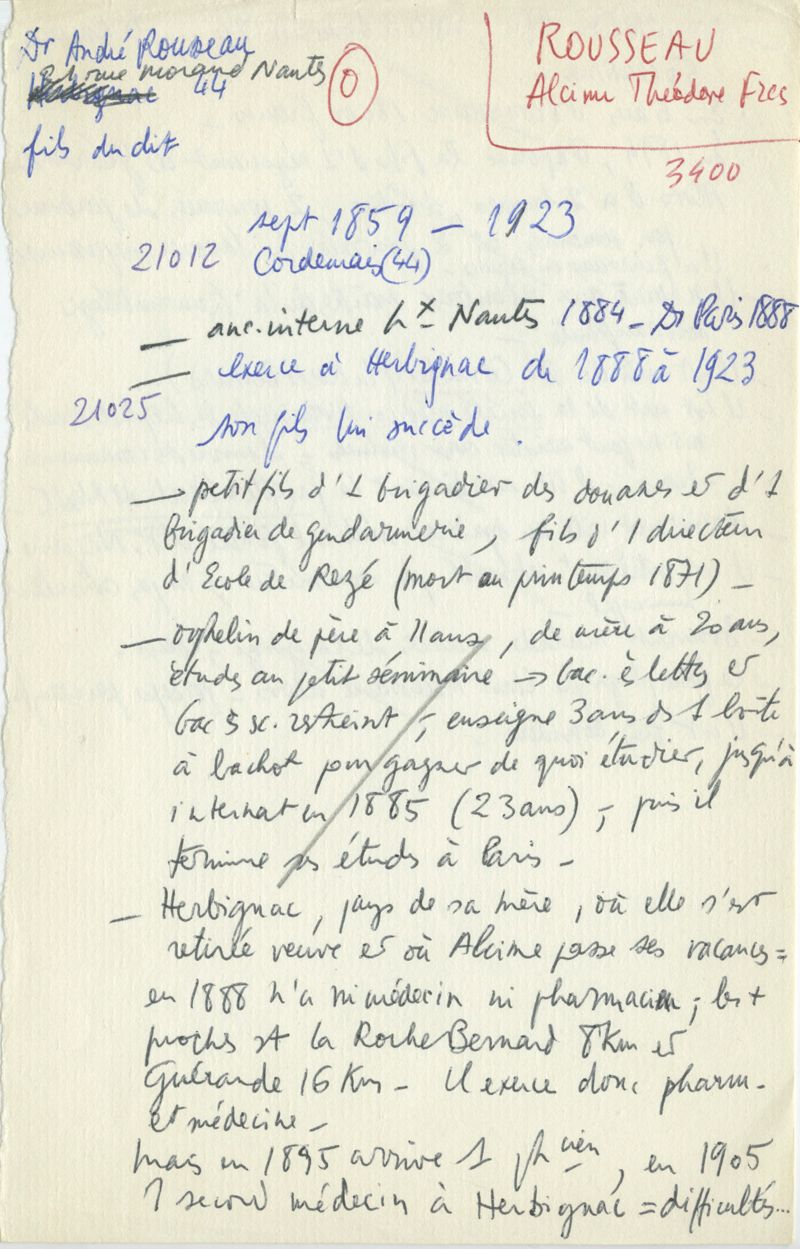 Dr André Rousseau
rue morand Nantes
44
fils du dit
0
ROUSSEAU
Alcime Théodore Frcs
3400
sept 1859 – 1923
21012 Cordemais (44)
— anc. interne hx Nantes 1884 – Dr Paris 1888
— exerce à Herbignac de 1888 à 1923
21025
son fils lui succède.
— petit fils d'1 brigadier des douanes et d'1
brigadier de gendarmerie, fils d'1 directeur
d'Ecole de Rezé (mort au printemps 1871) –
— orphelin de père à 11 ans, de mère à 20 ans,
études au petit séminaire → bac. ès lettres et
bac ès sc. restreint ; enseigne 3 ans ds 1 boîte
à bachot pour gagner de quoi étudier, jusqu'à
internat en 1885 (23 ans) ; puis il
termine ses études à Paris –
— Herbignac, pays de sa mère, où elle s'est
retirée veuve et où Alcime passe ses vacances =
en 1888 n'a ni médecin ni pharmacien ; les +
proches st la Roche Bernard 8 Km et
Guérande 16 Km – Il exerce donc pharm.
et médecine –
mais en 1895 arrive 1 phcien, en 1905
1 second médecin à Herbignac = difficultés...